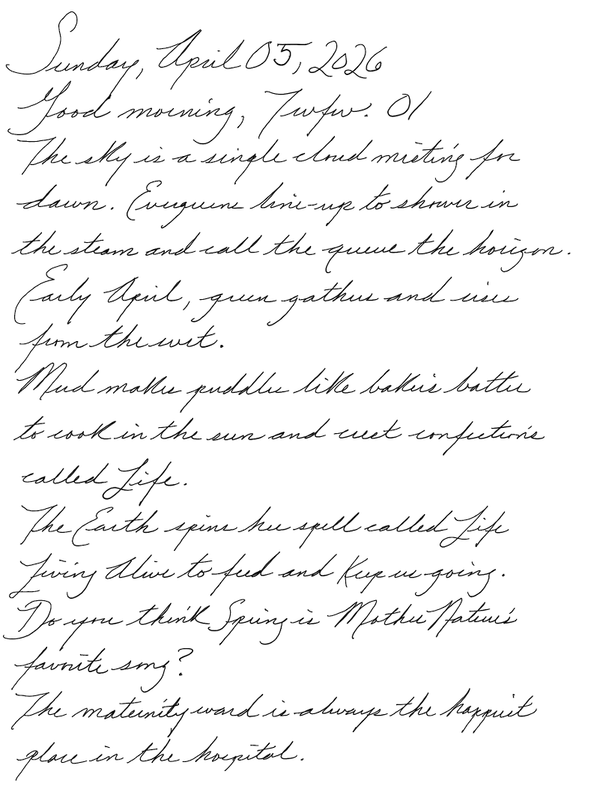 Sunday, April 05, 2026
Good morning, Twfw. 01
The sky is a single cloud misting for
dawn. Evergreens line-up to shower in
the steam and call the queue the horizon.
Early April, green gathers and rises
from the wet.
Mud makes puddles like baker's batter
to cook in the sun and erect confections
called Life.
The Earth spins her spell called Life
Living Alive to feed and Keep us going.
Do you think Spring is Mother Nature's
favorite song?
The maternity ward is always the happiest
place in the hospital.